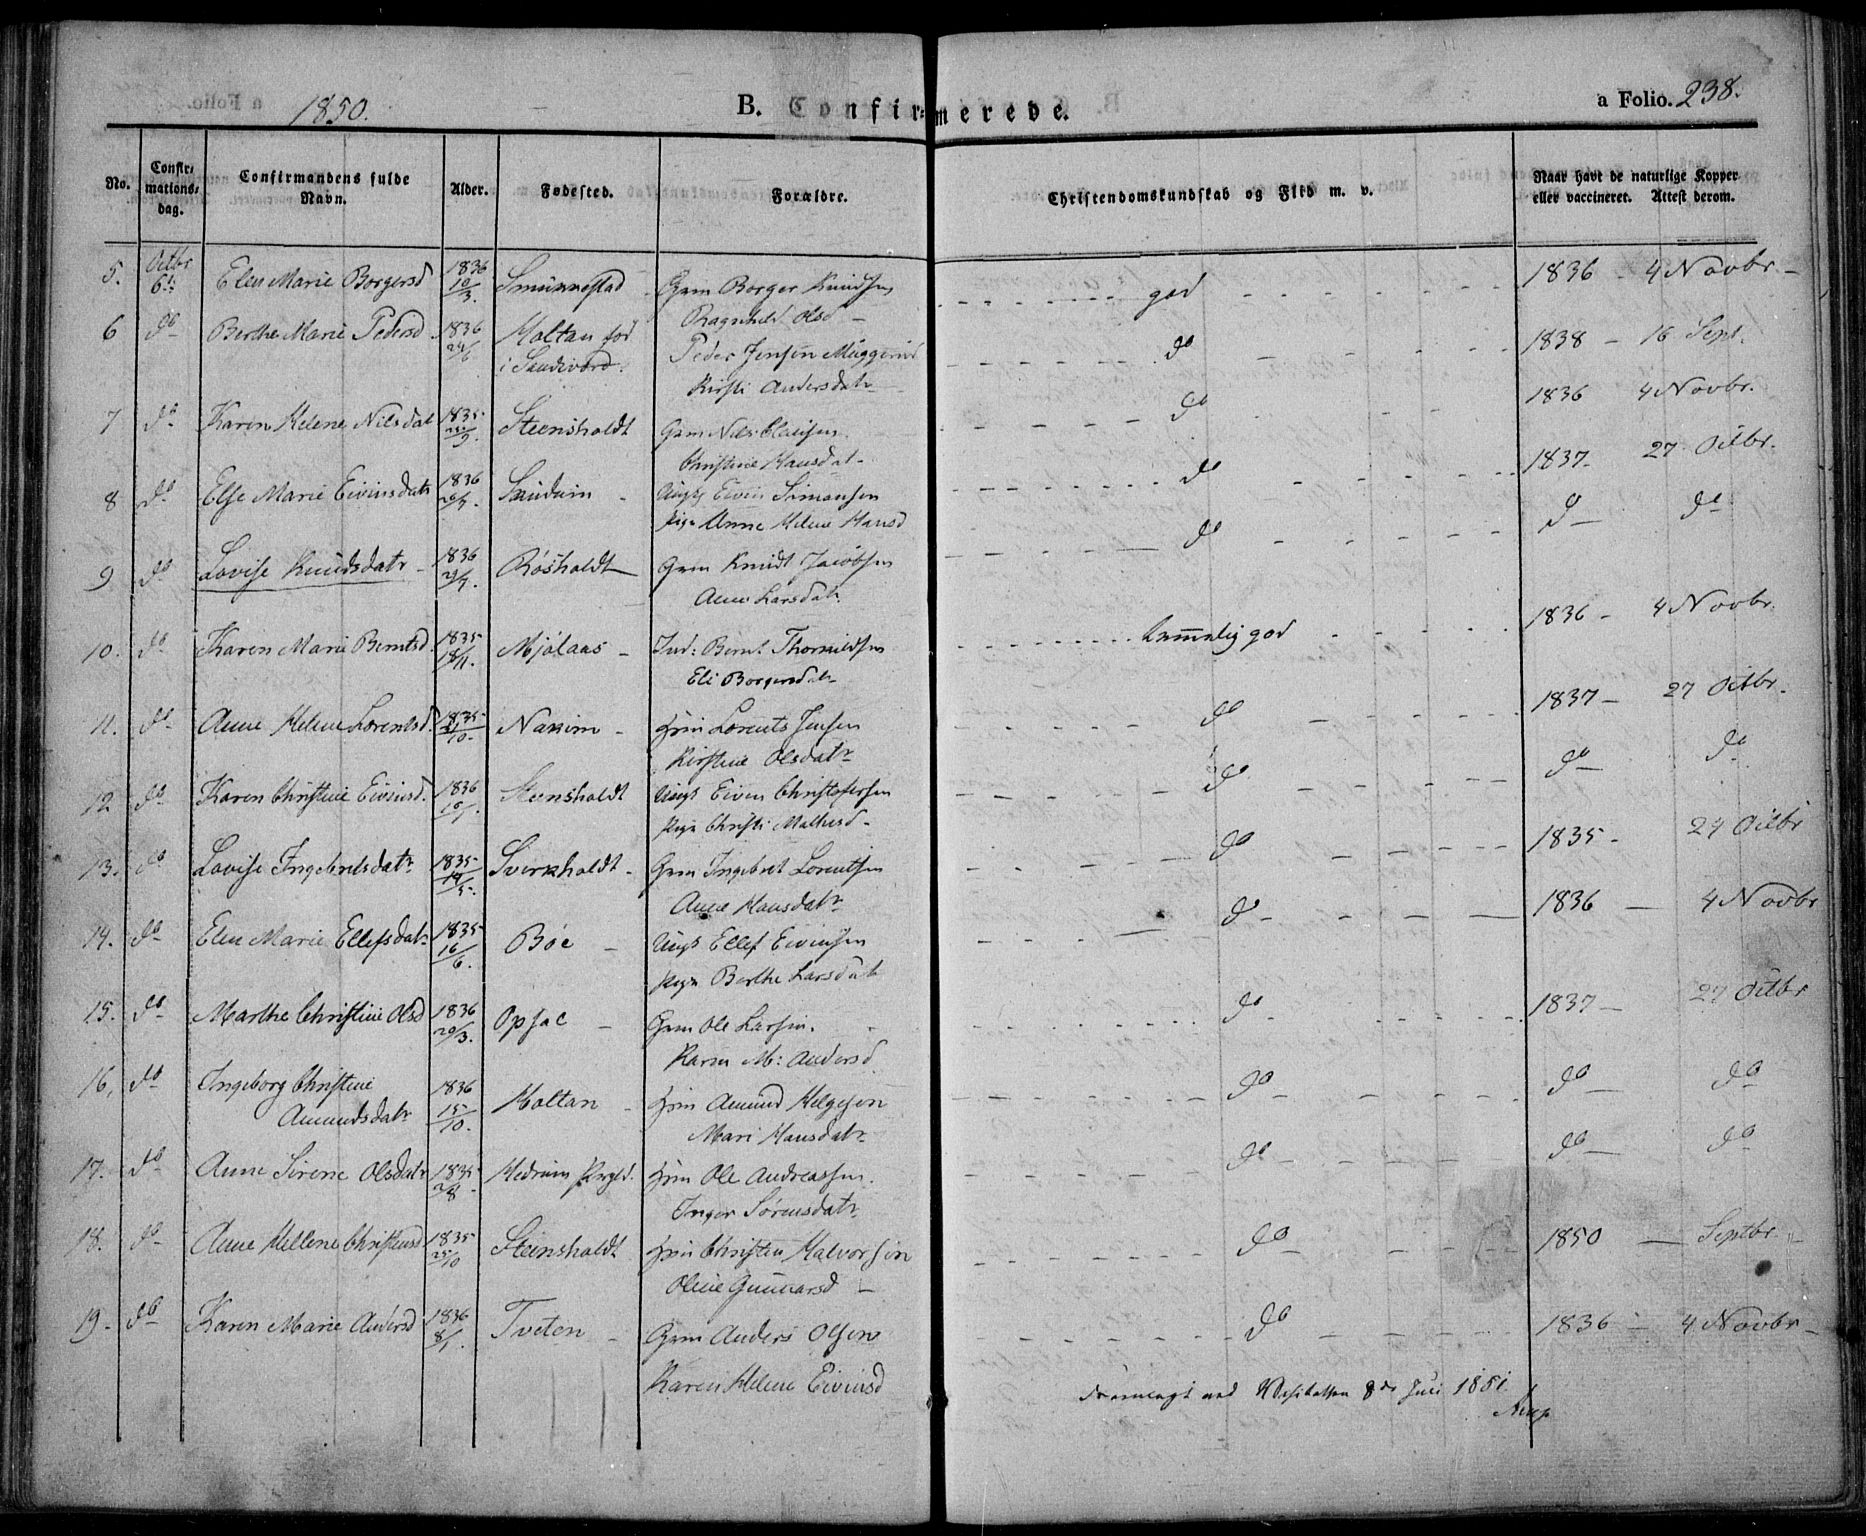 1850.
B. Confirmerede.
a Folio. 238.
No.
Confirmationsdag.
Confirmandens fulde Navn.
Alder.
Fødested.
Forældre.
Christendomskundskab og Flid m. v.
Naar havt de naturlige Kopper eller vaccineret. Attest derom.
5. Octbr 6te Elen Marie Borgersd 1836 10/3. Smünnestad Gjøm Borger Knudsen
Ragnhild Olsd god 1836 - 4 Novbr -
6 do Berthe Marie Pedersd. 1836 24/6 Holtan fød
i Sandeherd. Peder Jensen
Kirsti Andersdatr do 1838 - 16 Sept.
7 do Karen Helene Nilsdat 1835 9. Steensholdt Gjm Nils Clausen
Christine Hansdat. do 1836 4 Novbr.
8 do Else Marie Eivinsdatr 1836 Sundum Ungk Eivin Simonsen
Pige Anne Helene Hansd do 1837. 27 Octbr.
9 do Lovise Knudsdatr 1836 Røsholdt Gjm Knudt Jacobsen
Anne Larsdatr do do do
10. do Karen Marie Berntsd. 1835 18/11. Mjølaas Ind: Bernt
Eli Borgersdatr temmelig god 1836 - 4 Novbr.
11. do Anne Helene Lorentsd. 1835 10. Nanum Hsm Lorents Jensen
Kirstine Olsdatr do 1837 - 27 Octbr.
12 do Karen Christine Eivinsd. 1836 10/1. Steensholdt Ungk Eiven Christofersen
Pige Christi Mathisd do do do
13. do Lovise Ingebretsdatr 1835 14/5. Sverkholdt Gjm Ingebret Lorentsen
Anne Hansdatr do 1835 - 27 Octbr
14. do Elen Marie Ellefsdatr 1835 16/6. Bøe Ungk Ellef Eivinsen
Pige Berthe Larsdatr do 1836 - 4 Novbr
15. do Marthe Christine Olsd 1836 20/3. Opsac Gjm Ole Larsen
Karen M: Andersd do 1837 - 27 Octbr
16, do Ingeborg Christine
Amundsdatr 1836 15/10. Holtan Hsm Amund Helgesen
Mari Hansdatr do do do
17. do Anne Sirene Olsdatr 1835 2/8. Hedrum Prgld. Hsm Ole Andreassen.
Inger Sørensdatr do do do
18. do Anne Hellene Christensd 1835 25/10 Steinsholdt Hsm Christen Halvorsen
Olene Gunnarsd do 1850 - Septbr
19. do Karen Marie Andersd 1836 8/1. Tveten Gjm Anders Olsen
Karen Helene Eivinsd do 1836 - 4 Novbr -
Fremlagt ved Visitatsen 8de Juli 1851.
Arup